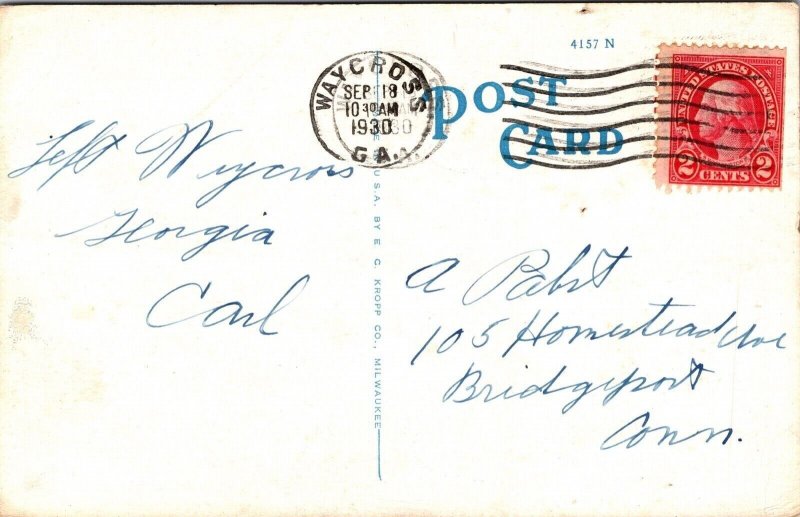 4157 N
POST
CARD
WAYCROSS
SEP 18
10 30 AM
1930
GA.
UNITED STATES POSTAGE
2 CENTS 2
Left Wycross
Georgia
Carl
U.S.A. BY E. C. KROPP CO., MILWAUKEE
A Pabst
105 Homestead Ave
Bridgeport
Conn.